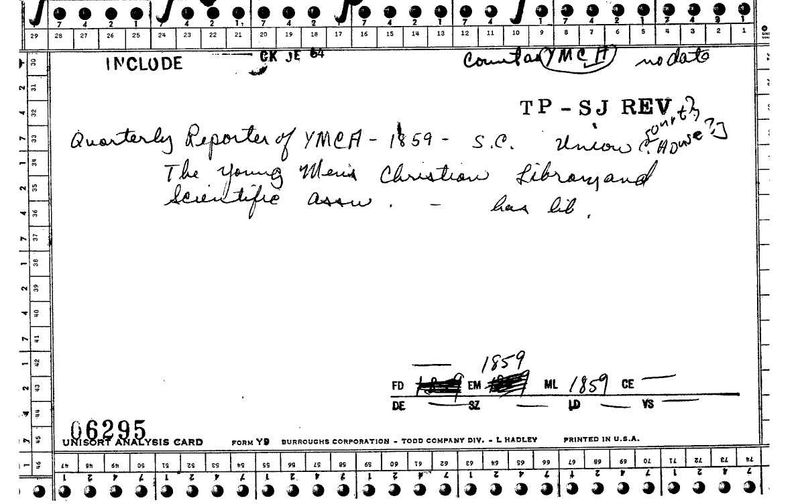 29 28 27 26 25 24 23 22 21 20 19 18 17 16 15 14 13 12 11 10 9 8 7 6 5 4 3 2 1
INCLUDE CK JE 64 Count as YMCA no date
TP - SJ REV
Quarterly Reporter of YMCA - 1859 - S.C. Union [Court? House?]
The Young Men's Christian Library and
Scientific assn. - has lib.
1859
FD EM ML 1859 CE
DE SZ LD VS
06295
UNISORT ANALYSIS CARD FORM Y9 BURROUGHS CORPORATION - TODD COMPANY DIV. - L HADLEY PRINTED IN U.S.A.
47 48 49 50 51 52 53 54 55 56 57 58 59 60 61 62 63 64 65 66 67 68 69 70 71 72 73 74